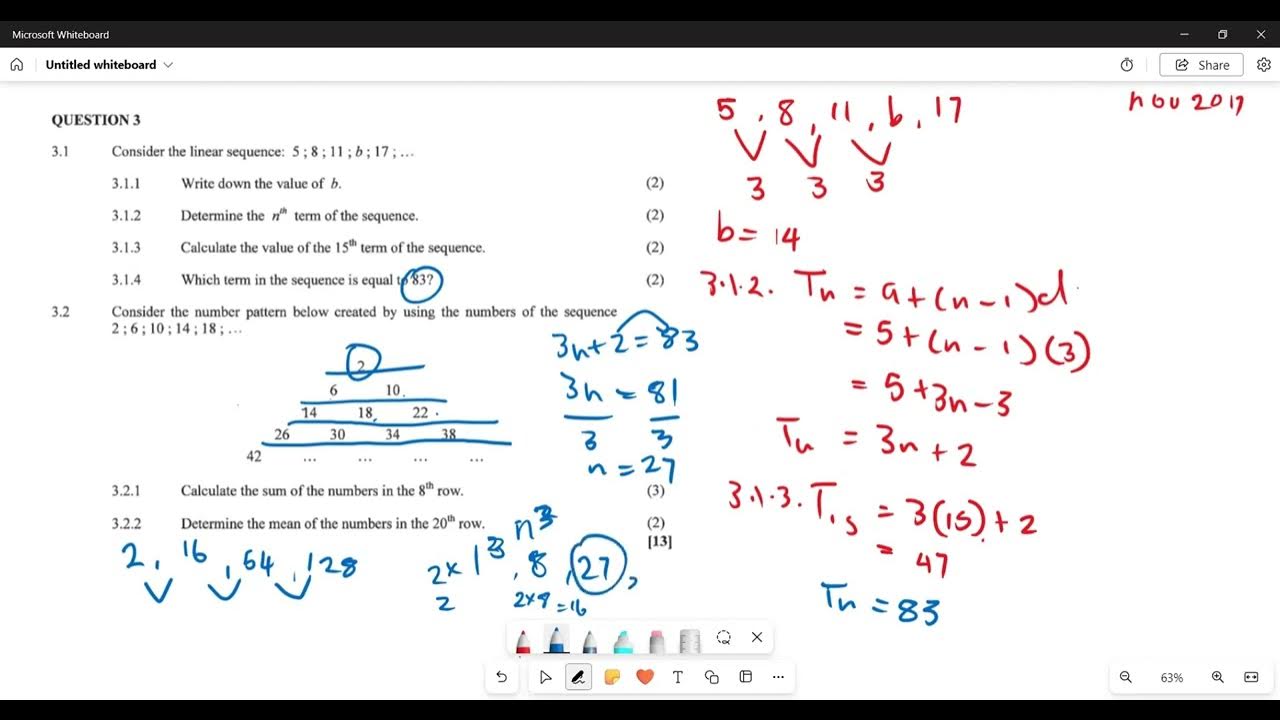 Microsoft Whiteboard
Untitled whiteboard
Share
QUESTION 3
3.1 Consider the linear sequence: 5 ; 8 ; 11 ; b ; 17 ; ...
3.1.1 Write down the value of b. (2)
3.1.2 Determine the nth term of the sequence. (2)
3.1.3 Calculate the value of the 15th term of the sequence. (2)
3.1.4 Which term in the sequence is equal to 83? (2)
3.2 Consider the number pattern below created by using the numbers of the sequence
2 ; 6 ; 10 ; 14 ; 18 ; ...
2
6 10
14 18 22
26 30 34 38
42 ... ... ... ...
3.2.1 Calculate the sum of the numbers in the 8th row. (3)
3.2.2 Determine the mean of the numbers in the 20th row. (2)
[13]
2, 16, 64, 128
n³
2× 1³, 8, 27,
2 2×8=16
3n+2=83
3n = 81
3 3
n = 27
Nov 2017
5, 8, 11, b, 17
3 3 3
b = 14
3.1.2. Tn = a+(n-1)d
= 5+(n-1)(3)
= 5+3n-3
Tn = 3n+2
3.1.3. T15 = 3(15)+2
= 47
Tn = 83
63%